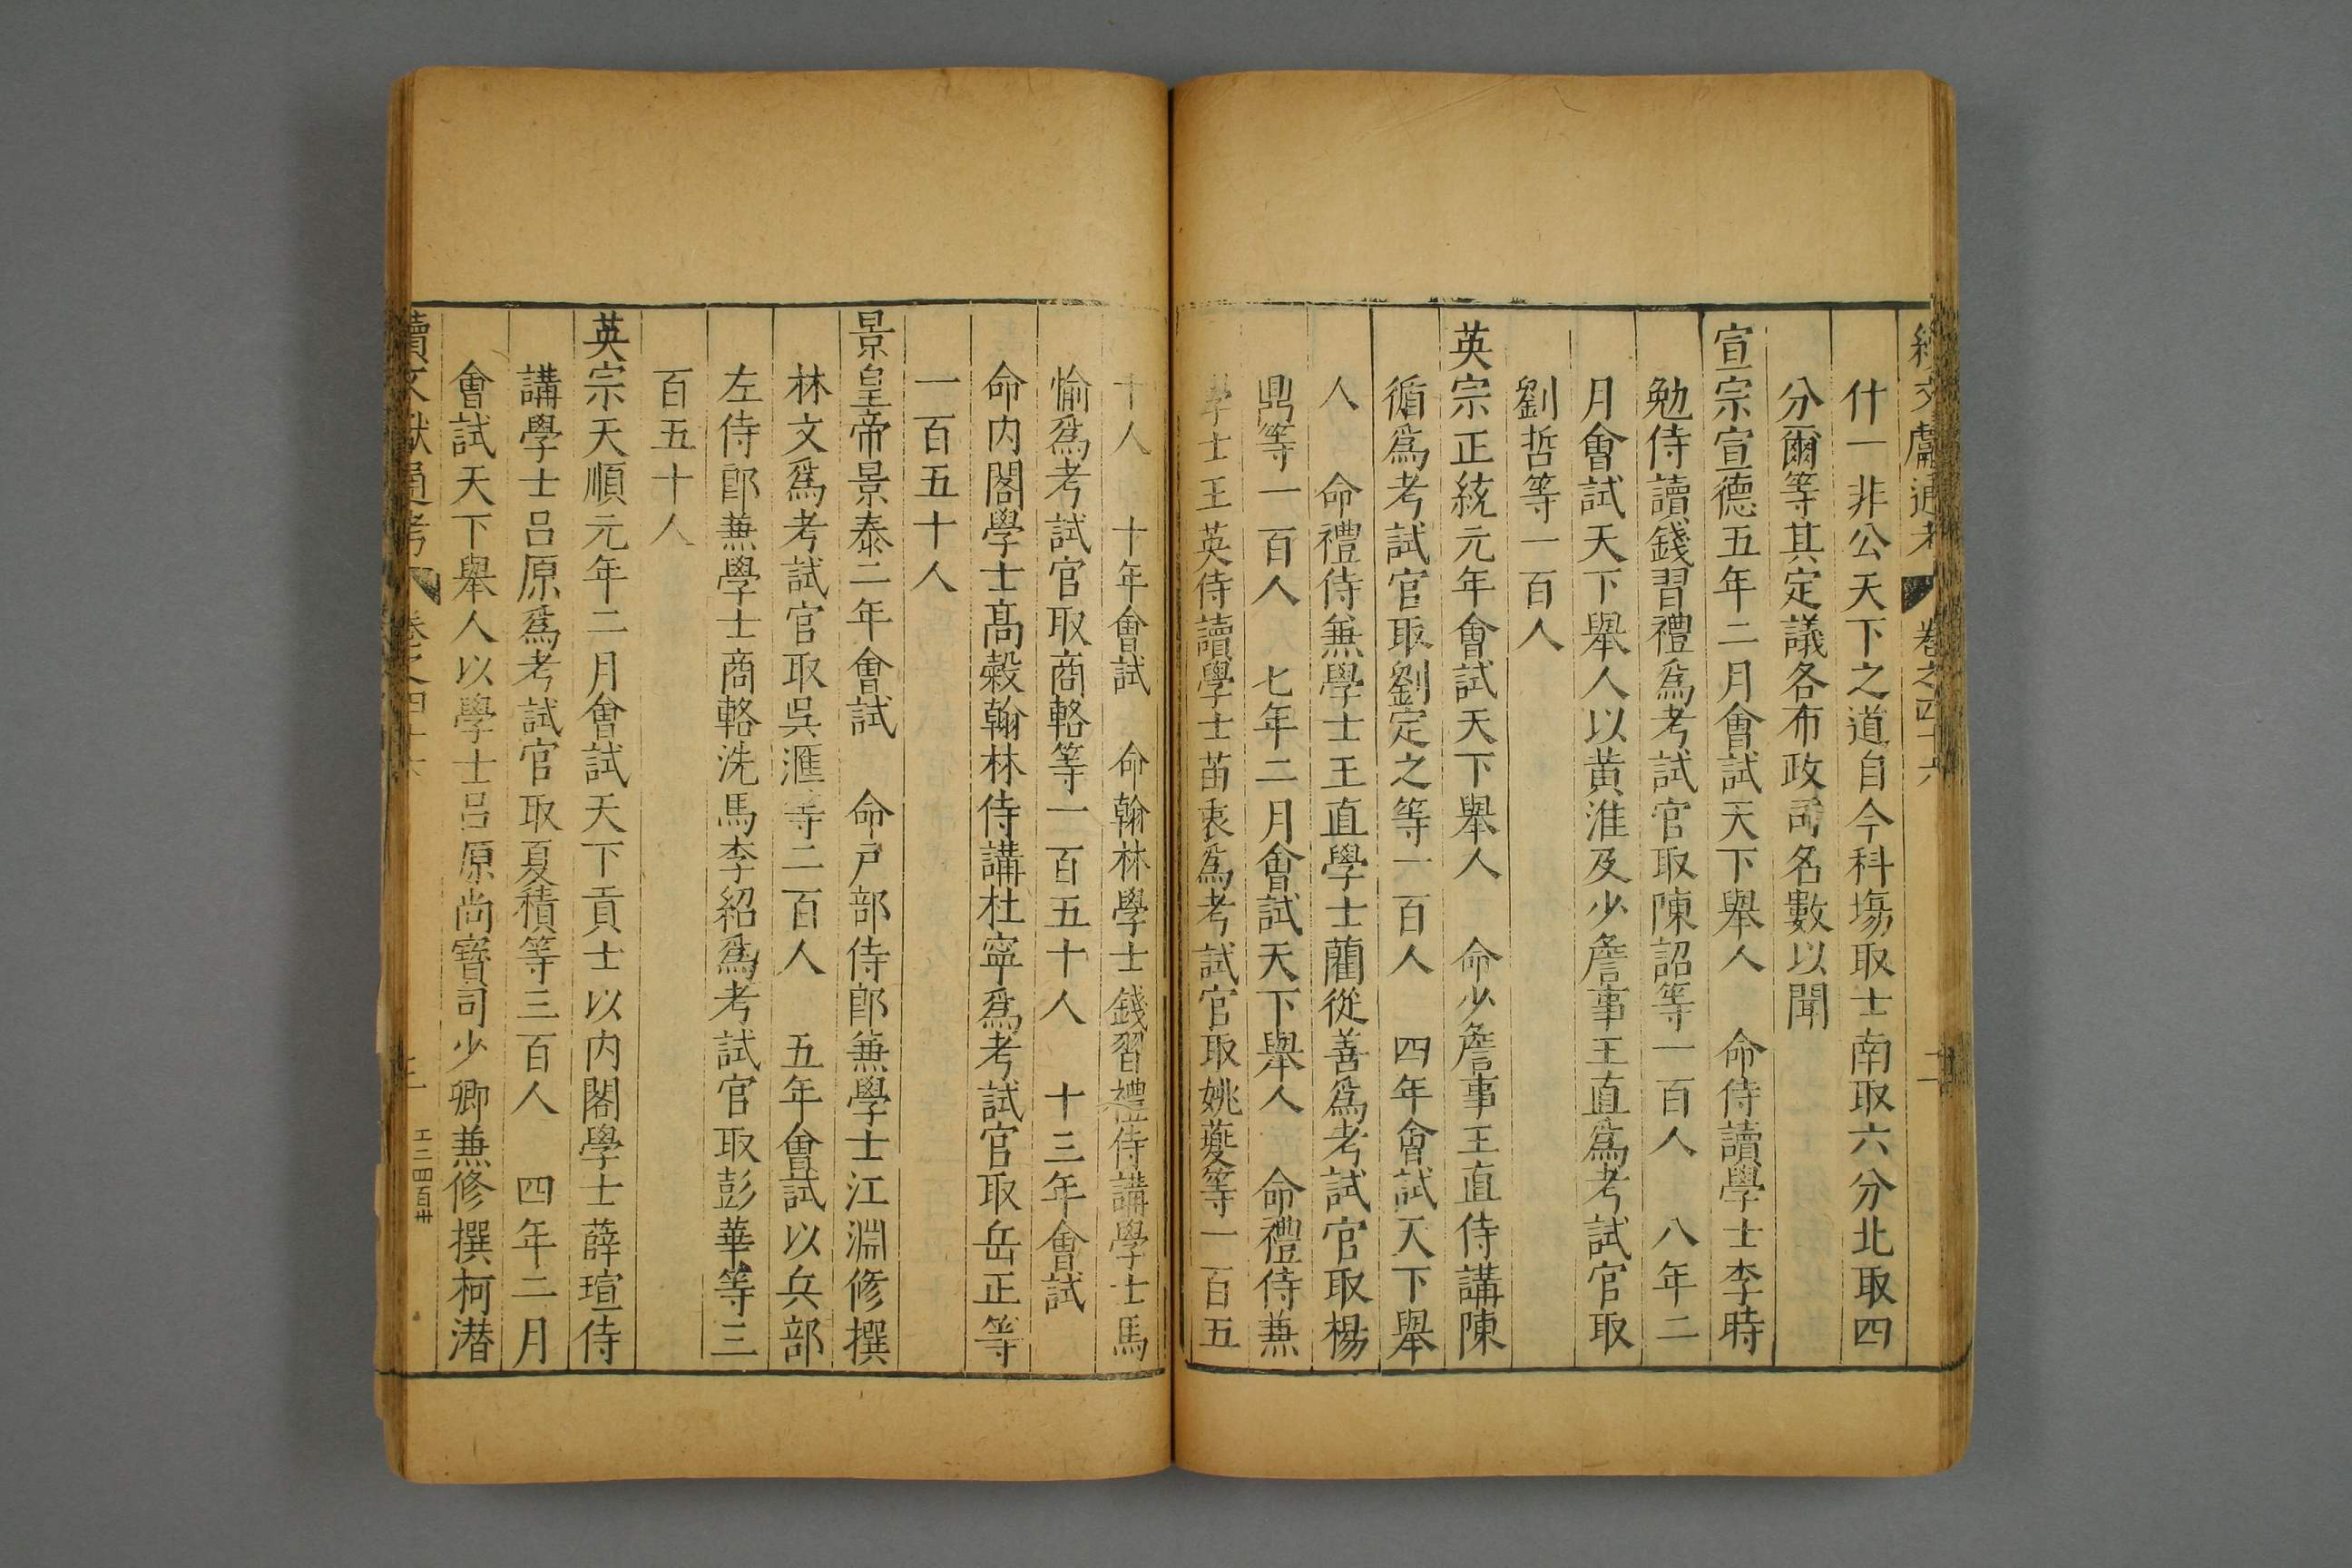 續文獻通考 卷之四十六 二
什一非公天下之道自今科塲取士南取六分北取四
分爾等其定議各布政司名數以聞
宣宗宣德五年二月會試天下舉人 命侍讀學士李時
勉侍讀錢習禮爲考試官取陳詔等一百人 八年二
月會試天下舉人以黄淮及少詹事王直爲考試官取
劉哲等一百人
英宗正統元年會試天下舉人 命少詹事王直侍講陳
循爲考試官取劉定之等一百人 四年會試天下舉
人 命禮侍兼學士王直學士藺從善爲考試官取楊
鼎等一百人 七年二月會試天下舉人 命禮侍兼
學士王英侍讀學士苗衷爲考試官取姚夔等一百五
十人 十年會試 命翰林學士錢習禮侍講學士馬
愉爲考試官取商輅等一百五十人 十三年會試
命内閣學士髙榖翰林侍講杜寧爲考試官取岳正等
一百五十人
景皇帝景泰二年會試 命戸部侍郎兼學士江淵修撰
林文爲考試官取吳滙等二百人 五年會試以兵部
左侍郎兼學士商輅洗馬李紹爲考試官取彭華等三
百五十人
英宗天順元年二月會試天下貢士以内閣學士薛瑄侍
講學士吕原爲考試官取夏積等三百人 四年二月
會試天下舉人以學士吕原尚寳司少卿兼修撰柯潜
續文獻通考 卷之四十六